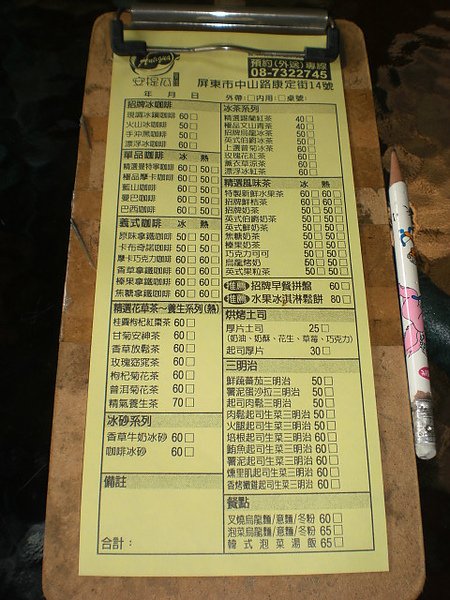 預約(外送)專線
08-7322745
屏東市中山路康定街14號
年 月 日 外帶:□內用:□桌號:
招牌冰咖啡
現調冰鑽咖啡 60□
火山冰咖啡 50□
手沖黑咖啡 50□
漂浮冰咖啡 60□
單品咖啡 冰 熱
精選曼特寧咖啡 60□ 50□
極品摩卡咖啡 60□ 50□
藍山咖啡 60□ 50□
曼巴咖啡 60□ 50□
巴西咖啡 60□ 50□
義式咖啡 冰 熱
原味拿鐵咖啡 50□ 50□
卡布奇諾咖啡 50□ 50□
摩卡巧克力咖啡 60□ 60□
香草拿鐵咖啡 60□ 60□
榛果拿鐵咖啡 60□ 60□
焦糖拿鐵咖啡 60□ 60□
精選花草茶～養生系列(熱)
桂圓枸杞紅棗茶 60□
甘菊安神茶 60□
香草放鬆茶 60□
玫瑰窈窕茶 60□
枸杞菊花茶 60□
普洱菊花茶 60□
精氣養生茶 70□
冰砂系列
香草牛奶冰砂 60□
咖啡冰砂 60□
備註
合計:
冰茶系列
精選錫蘭紅茶 40□
極品文山青茶 40□
招牌烏龍冰茶 50□
英式伯爵冰茶 50□
上選普菊冰茶 60□
玫瑰花紅茶 60□
薰衣草涼茶 60□
漂浮冰紅茶 60□
精選風味茶 冰 熱
特製新鮮水果茶 60□ 60□
招牌鮮桔茶 60□ 60□
招牌奶茶 50□ 50□
英式伯爵奶茶 50□ 50□
英式鮮奶茶 50□ 50□
焦糖奶茶 50□ 50□
榛果奶茶 50□ 50□
巧克力可可 50□ 50□
烏龍烤奶 50□ 60□
英式果粒茶 50□ 50□
推薦 招牌早餐拼盤 60□
推薦 水果冰淇淋鬆餅 80□
烘烤土司
厚片土司 25□
(奶油、奶酥、花生、草莓、巧克力)
起司厚片 30□
三明治
鮮蔬蕃茄三明治 50□
薯泥蛋沙拉三明治 50□
起司肉鬆三明治 50□
肉鬆起司生菜三明治 50□
火腿起司生菜三明治 50□
培根起司生菜三明治 60□
鮪魚起司生菜三明治 60□
薯泥起司生菜三明治 60□
燻里肌起司生菜三明治 60□
香烤嫩雞起司生菜三明治 60□
餐點
叉燒烏龍麵/意麵/冬粉 60□
泡菜烏龍麵/意麵/冬粉 65□
韓式泡菜湯飯 65□